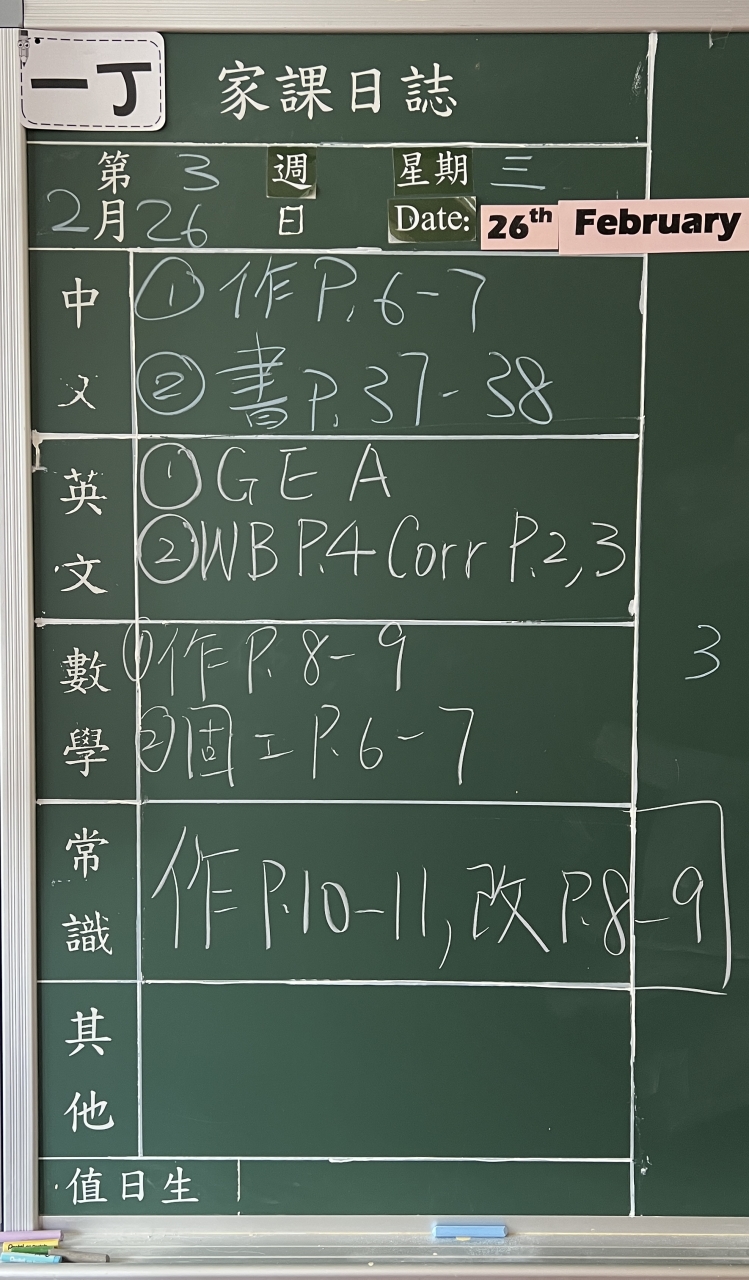 一丁
家課日誌
第 3 週 星期 三
2月26日 Date: 26th February
中文
① 作 P.6-7
② 書 P.37-38
英文
① GE A
② WB P.4 Corr P.2,3
數學
① 作 P.8-9
② 固工 P.6-7
3
常識
作 P.10-11, 改 P.8-9
其他
值日生